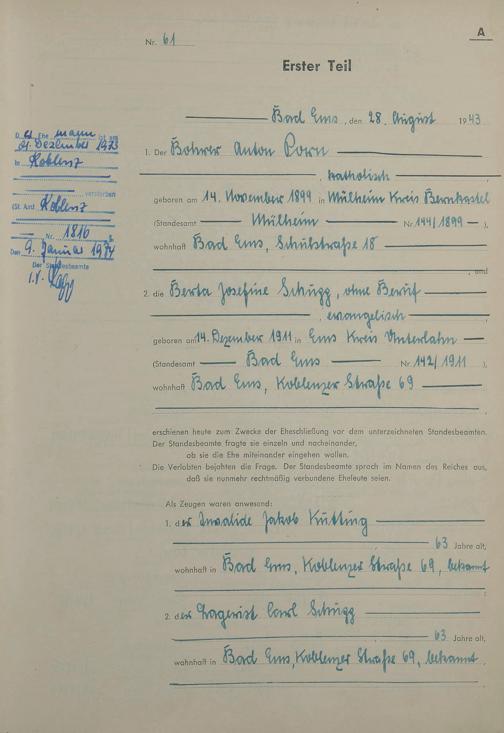 A
Nr. 61
Erster Teil
Bad Ems, den 28. August 1943
1. Der Bohrer Anton Porn
, katholisch
geboren am 14. November 1899 in Mülheim Kreis Bernkastel
(Standesamt Mülheim Nr. 144/1899 ),
wohnhaft Bad Ems, Schulstraße 18
, und
2. die Berta Josefine Schugg, ohne Beruf
, evangelisch
geboren am 14. Dezember 1911 in Ems Kreis Unterlahn
(Standesamt Bad Ems Nr. 142/1911 ),
wohnhaft Bad Ems, Koblenzer Straße 69
erschienen heute zum Zwecke der Eheschließung vor dem unterzeichneten Standesbeamten.
Der Standesbeamte fragte sie einzeln und nacheinander,
ob sie die Ehe miteinander eingehen wollen.
Die Verlobten bejahten die Frage. Der Standesbeamte sprach im Namen des Reiches aus,
daß sie nunmehr rechtmäßig verbundene Eheleute seien.
Als Zeugen waren anwesend:
1. der Invalide Jakob Kutting
63 Jahre alt,
wohnhaft in Bad Ems, Koblenzer Straße 69, bekannt
2. der Lagerist Carl Schugg
63 Jahre alt,
wohnhaft in Bad Ems, Koblenzer Straße 69, bekannt.
Der Ehemann ist am
21. Dezember 1973
in Koblenz
verstorben
(St. Amt Koblenz
Nr. 1816
Den 9. Januar 1974
Der Standesbeamte
I.V.